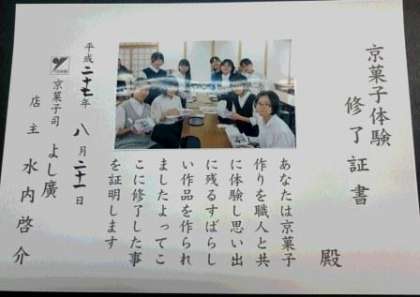 京菓子体験
修了証書
殿
あなたは京菓子
作りを職人と共
に体験し思い出
に残るすばらし
い作品を作られ
ましたよってこ
こに修了した事
を証明します
平成二十七年八月二十一日
京菓子司よし廣
店主水内啓介